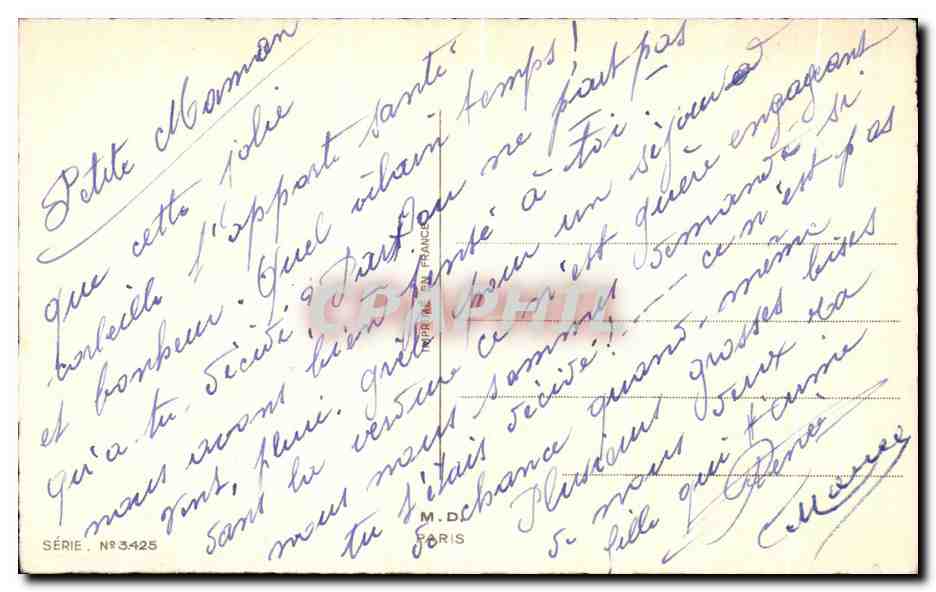 Petite Maman
que cette jolie
corbeille t'apporte santé
et bonheur. Quel vilain temps!
qu'a tu décidé? Part on ne part pas
nous avons bien pensé à toi -
vent, pluie, grêle pour un séjour
dans la verdure ce n'est guère engageant
nous nous sommes demandé si
tu t'étais décidé!---- ce n'est pas
de chance quand-même
Plusieurs grosses bises
de nous deux ta
fille qui t'aime
Marcel
IMPRIMÉ EN FRANCE
CPAPHIL
M. D.
PARIS
SÉRIE. Nº 3.425